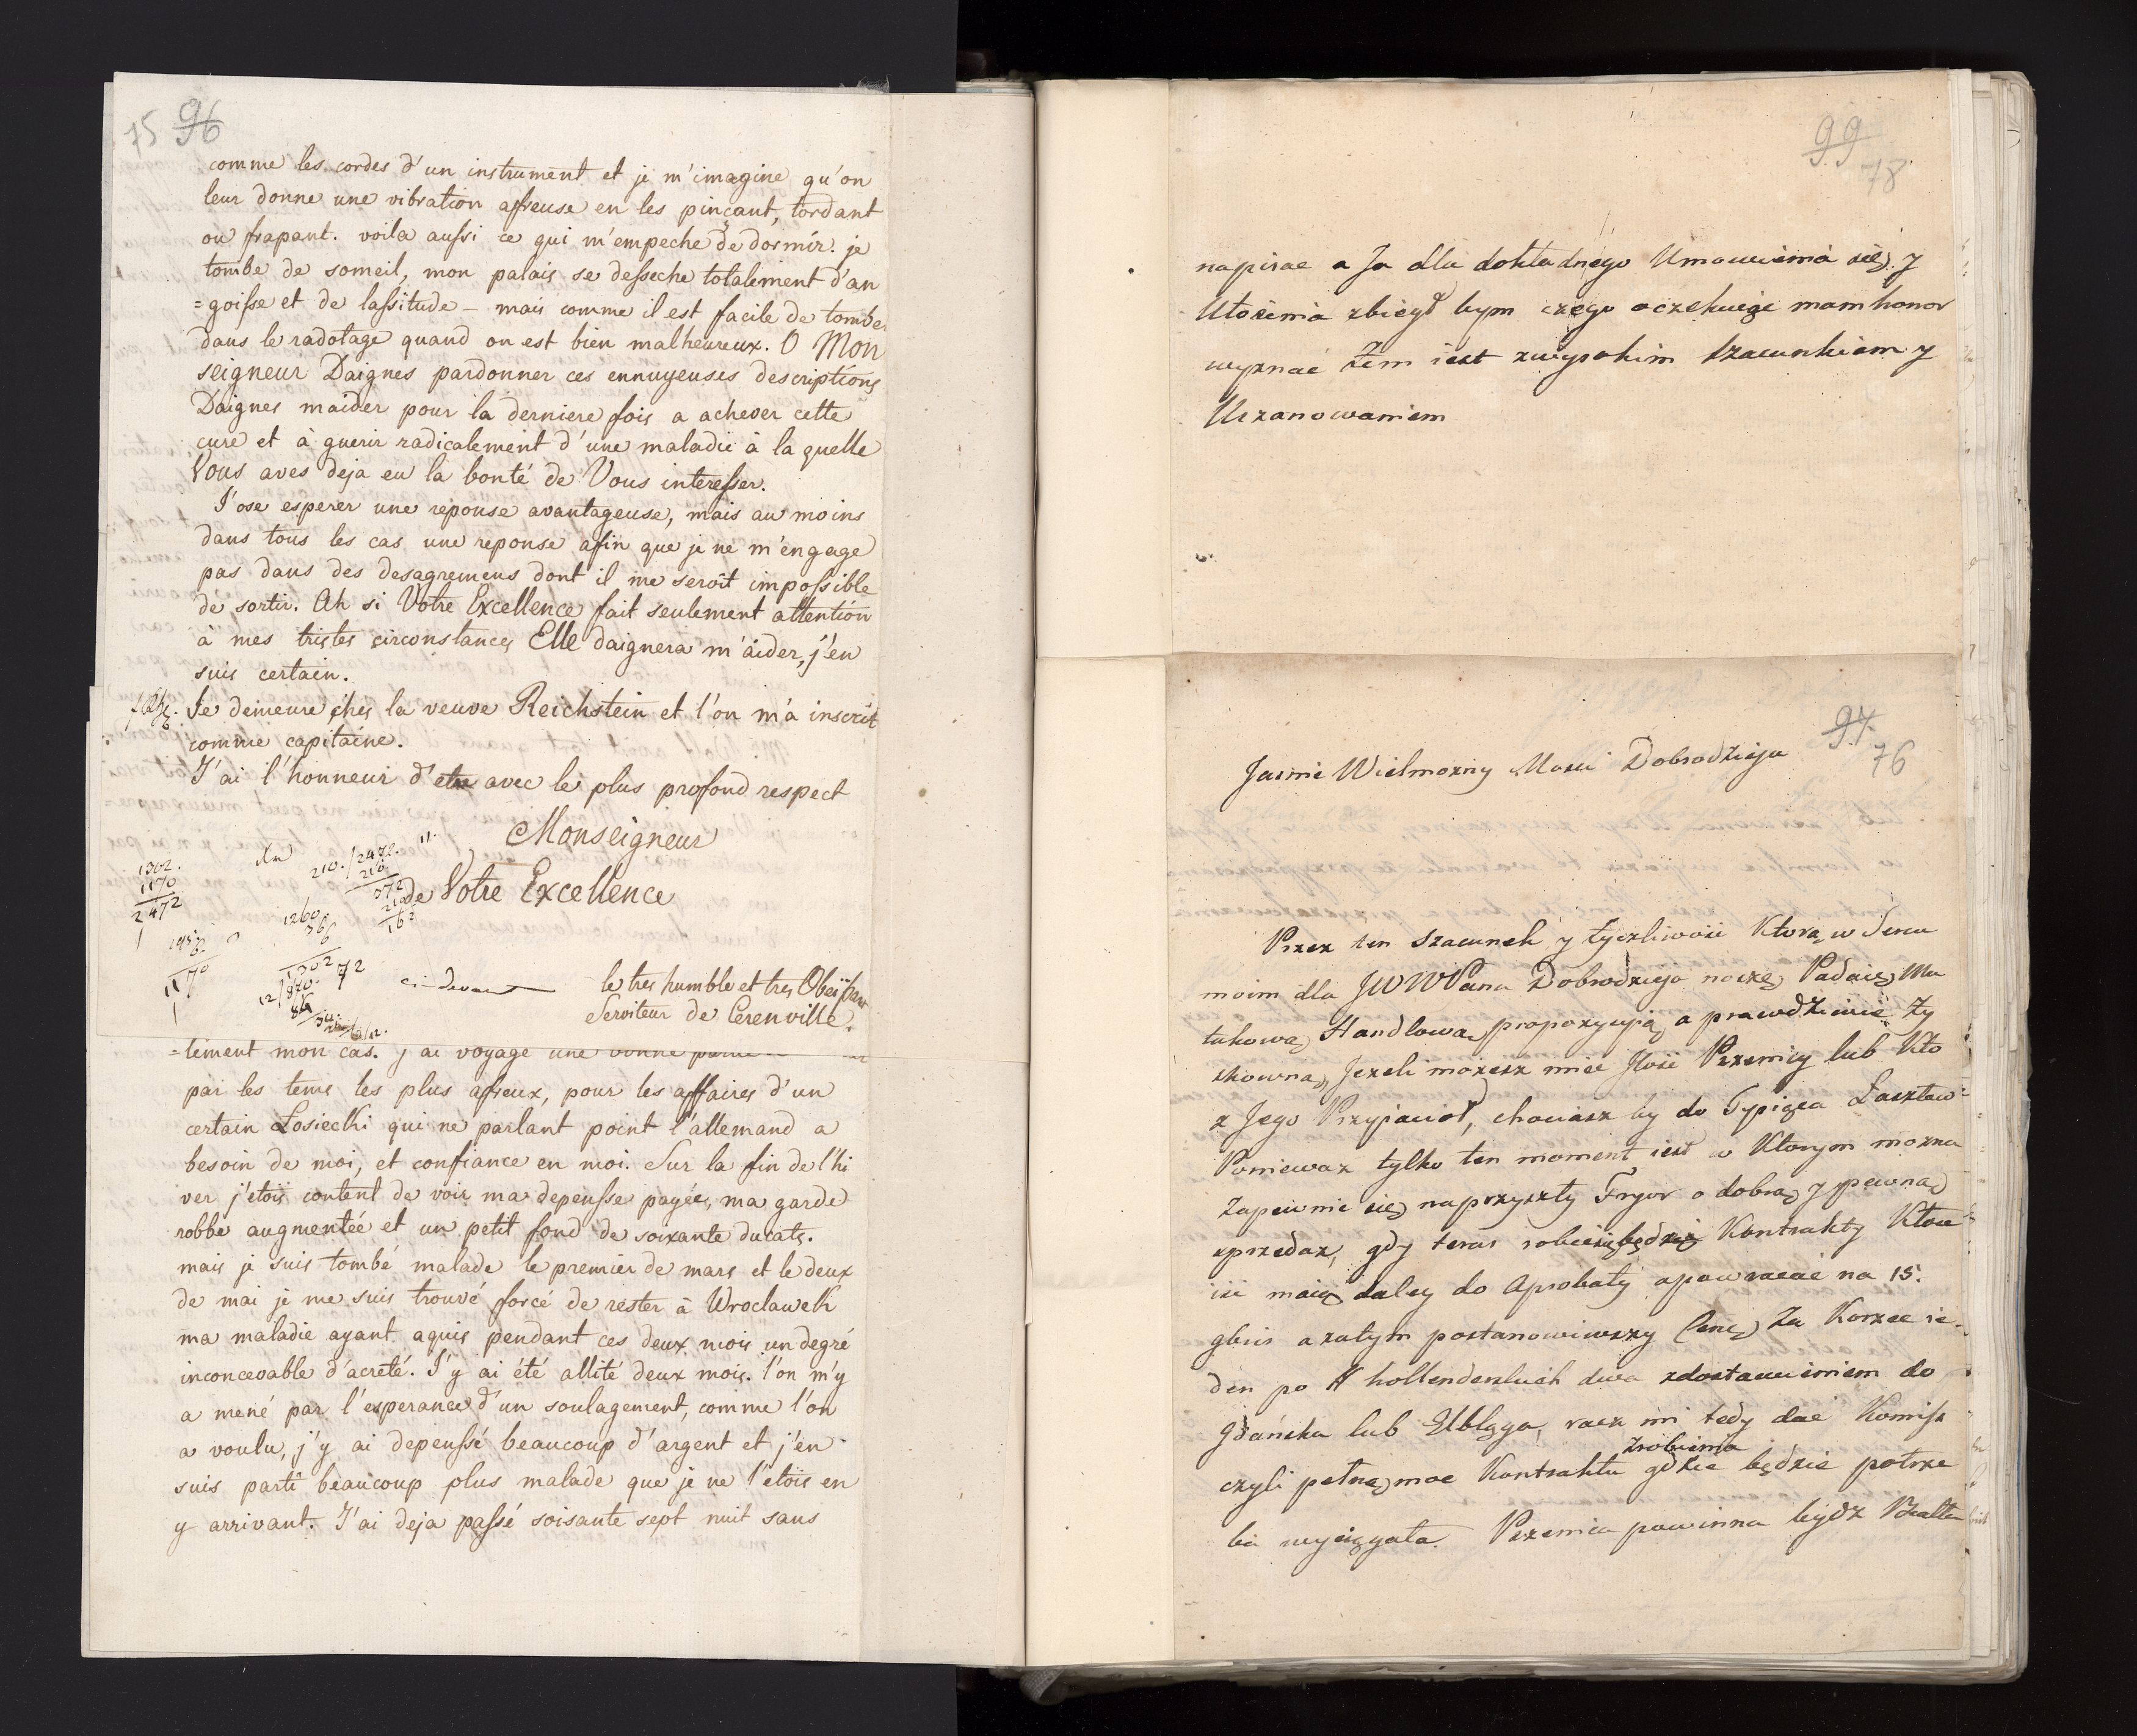 75 96
comme les cordes d'un instrument et je m'imagine qu'on
leur donne une vibration afreuse en les pinçant, tordant
ou frapant. voila aussi ce qui m'empeche de dormir. je
tombe de someil, mon palais se desseche totalement d'an
=goisse et de lassitude – mais comme il est facile de tomber
dans le radotage quand on est bien malheureux. O Mon
seigneur Daignes pardonner ces ennuyeuses descriptions
Daignes maider pour la derniere fois a achever cette
cure et à guerir radicalement d'une maladie à la quelle
Vous aves deja eu la bonté de Vous interesser.
J'ose esperer une reponse avantageuse, mais au moins
dans tous les cas une reponse afin que je ne m'engage
pas dans des desagremens dont il me seroit impossible
de sortir. Ah si Votre Excellence fait seulement attention
à mes tristes circonstances Elle daignera m'aider, j'en
suis certain.
Je demeure ches la veuve Reichstein et l'on m'a inscrit
comme capitaine.
J'ai l'honneur d'etre avec le plus profond respect
Monseigneur
de Votre Excellence
1302.
1170
2472
210./2472. 11.
210
372
210
162
1260
1302
72
1170
12/870.
84
ci-devant
le tres humble et tres Obeissant
Serviteur de Cerenville.
=tement mon cas. j'ai voyagé une bonne
par les tems les plus afreux, pour les affaires d'un
certain Łosiecki qui ne parlant point l'allemand a
besoin de moi, et confiance en moi. Sur la fin de l'hi
ver j'etois content de voir ma depensse payée, ma garde
robbe augmentée et un petit fond de soixante ducats.
mais je suis tombé malade le premier de mars et le deux
de mai je me suis trouvé forcé de rester à Wroclawek
ma maladie ayant aquis pendant ces deux mois un degré
inconcevable d'acreté. J'y ai été allité deux mois. l'on m'y
a mené par l'esperance d'un soulagement, comme l'on
a voulu, j'y ai depenssé beaucoup d'argent et j'en
suis parti beaucoup plus malade que je ne l'etois en
y arrivant. J'ai deja passé soisante sept nuit sans
99
78
napisac a Ja dla dokładnego Umowienia się y
Ułożenia zbiegł bym czego oczekuiąc mam honor
wyznać żem iest zwysokim szacunkiem y
Uszanowaniem
97.
76
Jasnie Wielmozny Mosci Dobrodzieju
Przez ten szacunek y życzliwosc Ktorą w Sercu
moim dla JWWPana Dobrodzieja noszę, Podaię Mu
takową Handlową propozycyią a prawdziwie Zy
skowną, Jezeli możesz miec Jlosc Pszenicy lub Kto
z Jego Przyjacioł, chociasz by do Tysiąca Łasztow
Poniewaz tylko ten moment iest w Ktorym mozna
Zapewnic się naprzyszły Fryor o dobrą y pewną
sprzedaz, gdy teras robić się będzie Kontrakty Ktore
isc maią daley do Aprobaty apowracać na 15.
gbris a zatym postanowiwszy Cenę Za Korzec ie-
den po # hollenderskich dwa zdostawieniem do
Gdańska lub Elbląga, racz mi tedy dac Komiss
czyli pełną moc Kontraktu zrobienia gdzie będzie potrze
ba wyciągała. Pszenica powinna bydz